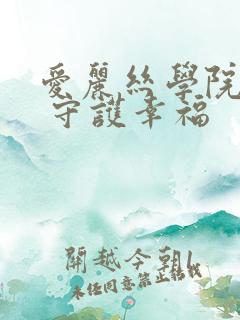 愛麗絲學院
守護幸福
開越今朝L
未經同意禁止轉載